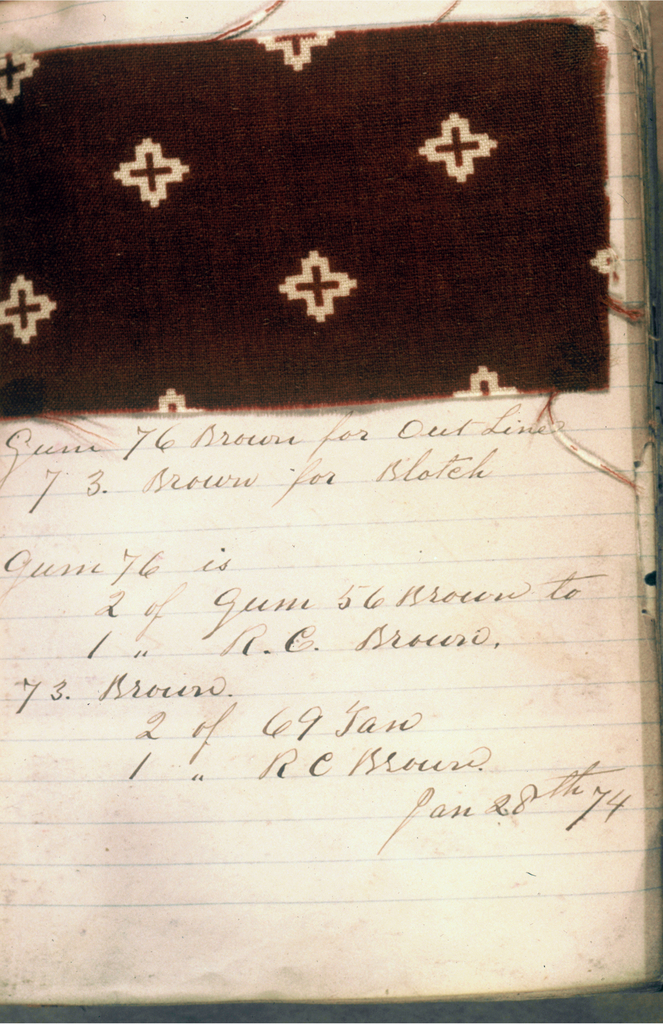 Gum 76 Brown for Out Line
73. Brown for Blotch
Gum 76 is
2 of Gum 56 Brown to
1 " R. C. Brown.
73. Brown.
2 of 69 Tan
1 " R C Brown.
Jan 28th 74